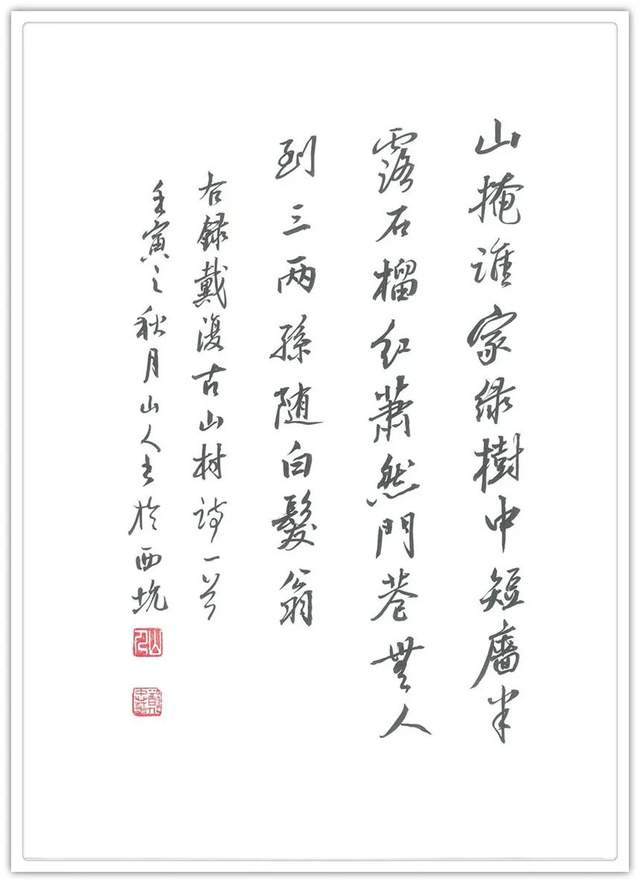 山掩谁家绿樹中短廧半
露石榴红蕭然門巷無人
到三两孫随白髮翁
右録戴復古山村诗一首
壬寅之秋月山人书於西坑
山人